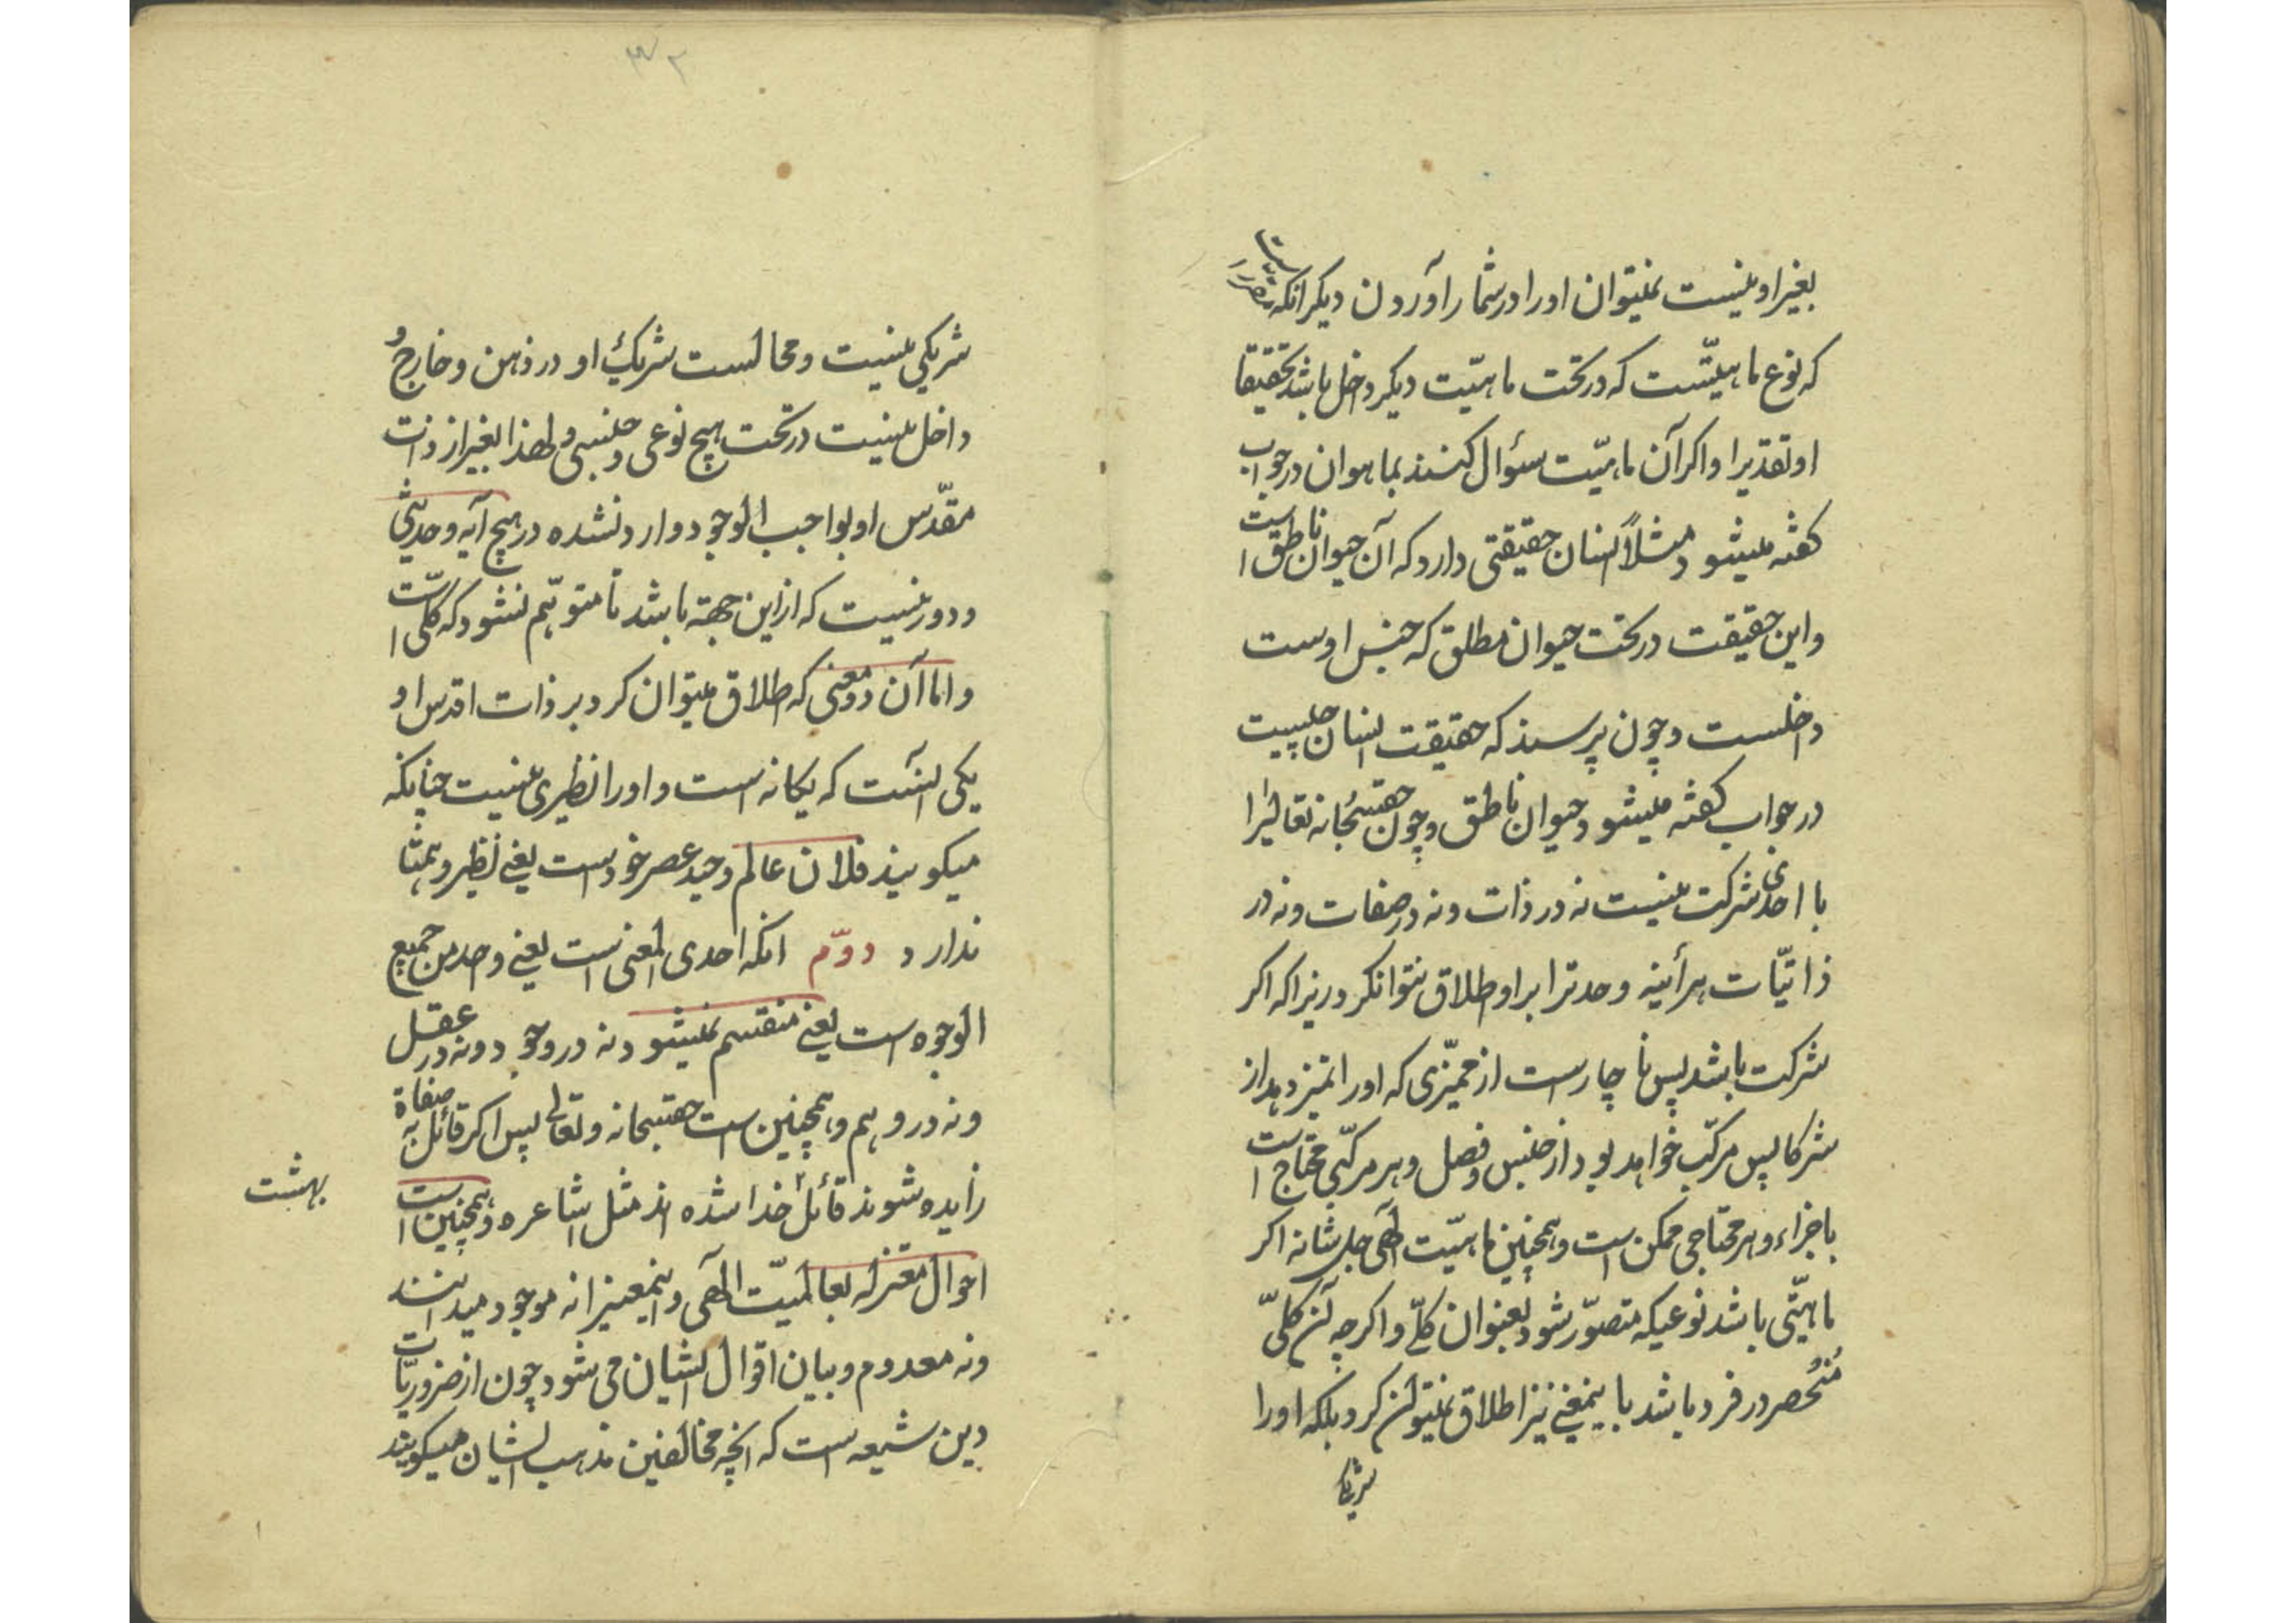 بغیر او نیست نمیتوان او را در شمار آوردن دیکر آنکه مقرر است
که نوع ماهیتست که در تحت ماهیت دیکر داخل باشد تحقیقا
او تقدیرا و اکر آن ماهیت سؤال کنند بما هو ان در جواب
کفته میشود مثلاً انسان حقیقتی دارد که آن حیوان ناطق است
و این حقیقت در تحت حیوان مطلق که جنس اوست
داخلست و چون پرسند که حقیقت انسان چیست
در جواب کفته میشود حیوان ناطق و چون حقسبحانه تعالیرا
با احدی شرکت نیست نه در ذات و نه در صفات و نه در
ذاتیّات هرآینه وحدترا بر او اطلاق نتوانکرد زیرا که اکر
شرکت باشد پس ناچار است از ممیّزی که او را تمیز دهد از
شرکا پس مرکّب خواهد بود از جنس و فصل و هر مرکّبی محتاج است
باجزاء و هر محتاجی ممکن است و همچنین ماهیّت الهی جل شانه اکر
ماهیّتی باشد نوعیکه متصوّر شود بعنوان کلّی و اکرچه آن کلّی
مُنحصر در فرد باشد باینمعنی نیز اطلاق نمیتوان کرد بلکه او را
شریکی
۳۲
شریکی نیست و محالست شریک او در ذهن و خارج و
داخل نیست در تحت هیچ نوعی و جنسی و لهذا بغیر از ذات
مقدّس او بواجب الوجود وارد نشده در هیچ آیه و حدیثی
و دور نیست که از این جهة باشد تا متوهّم نشود که کلّی است
و اما آن دو معنی که اطلاق میتوان کرد بر ذات اقدس او
یکی آنست که یکانه است و او را نظیری نیست چنانکه
میکویند فلان عالم وحید عصر خود است یعنی نظیر و همتا
ندارد دوّم آنکه احدی المعنی است یعنی واحد من جمیع
الوجوه است یعنی منقسم نمیشود نه در وجود و نه در عقل
و نه در وهم و همچنین است حقسبحانه و تعالی پس اکر قائل به صفاة
زایده شوند قائل ۲ خدا شده اند مثل اشاعره و همچنین است
احوال معتزله بعالمیّت الهی و اینمعنیرا نه موجود میدانند
و نه معدوم و بیان اقوال ایشان می شود چون از ضروریّات
دین شیعه است که آنچه مخالفین مذهب ایشان میکویند
بهشت